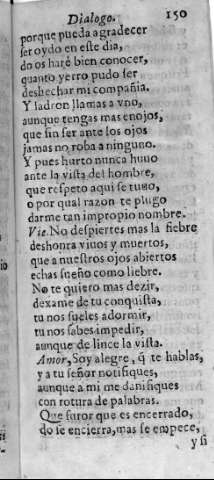 Dialogo. 150
porque pueda agradecer
ser oydo en este dia,
do os haré bien conocer,
quanto yerro pudo ser
deshechar mi compañia.
Y ladron llamas a vno,
aunque tengas mas enojos,
que sin ser ante los ojos
jamas no roba a ninguno.
Y pues hurto nunca huuo
ante la vista del hombre,
que respeto aqui se tuuo,
o por qual razon te plugo
darme tan impropio nombre.
Vie. No despiertes mas la fiebre
deshonra viuos y muertos,
que a nuestros ojos abiertos
echas sueño como liebre.
No te quiero mas dezir,
dexame de tu conquista,
tu nos sueles adormir,
tu nos sabes impedir,
aunque de lince la vista.
Amor, Soy alegre, q̃ te hablas,
y a tu señor notifiques,
aunque a mi me danifiques
con rotura de palabras.
Que furor que es encerrado,
do se encierra, mas se empece,
y si